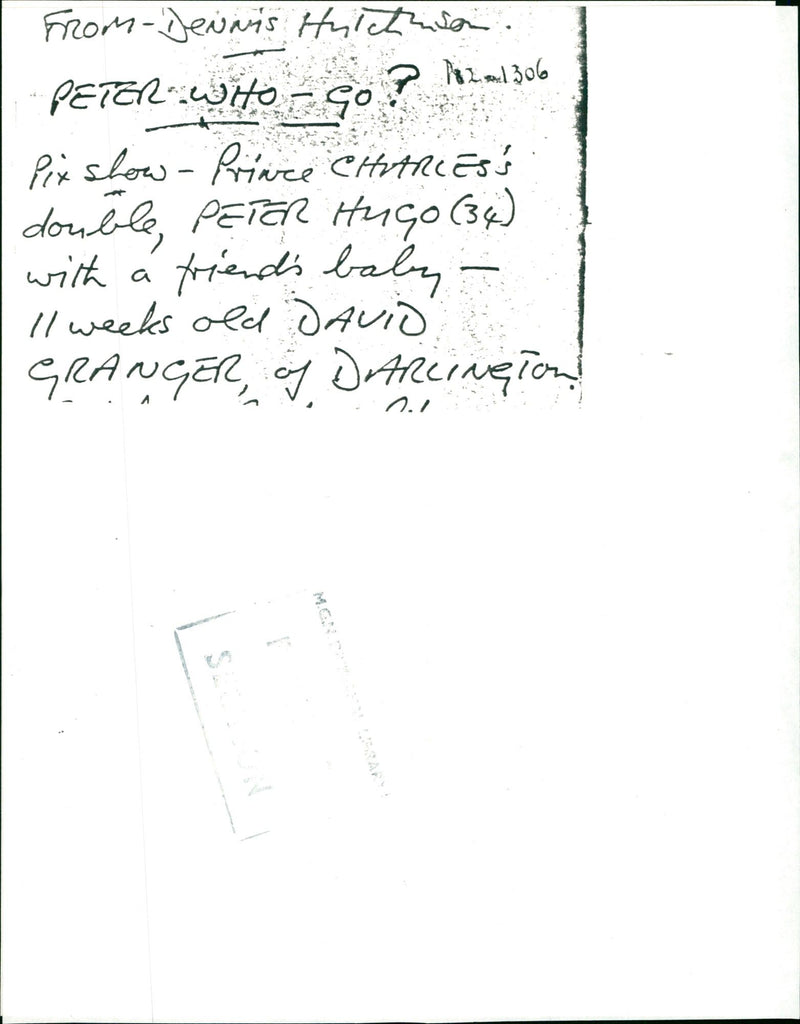 FROM - Dennis Hutchinson.
PETER - WHO - GO?
1306
Pix show - Prince CHARLES's
double, PETER HUGO (34)
with a friend's baby —
11 weeks old DAVID
GRANGER, of DARLINGTON.
LIBRARY
SECTION